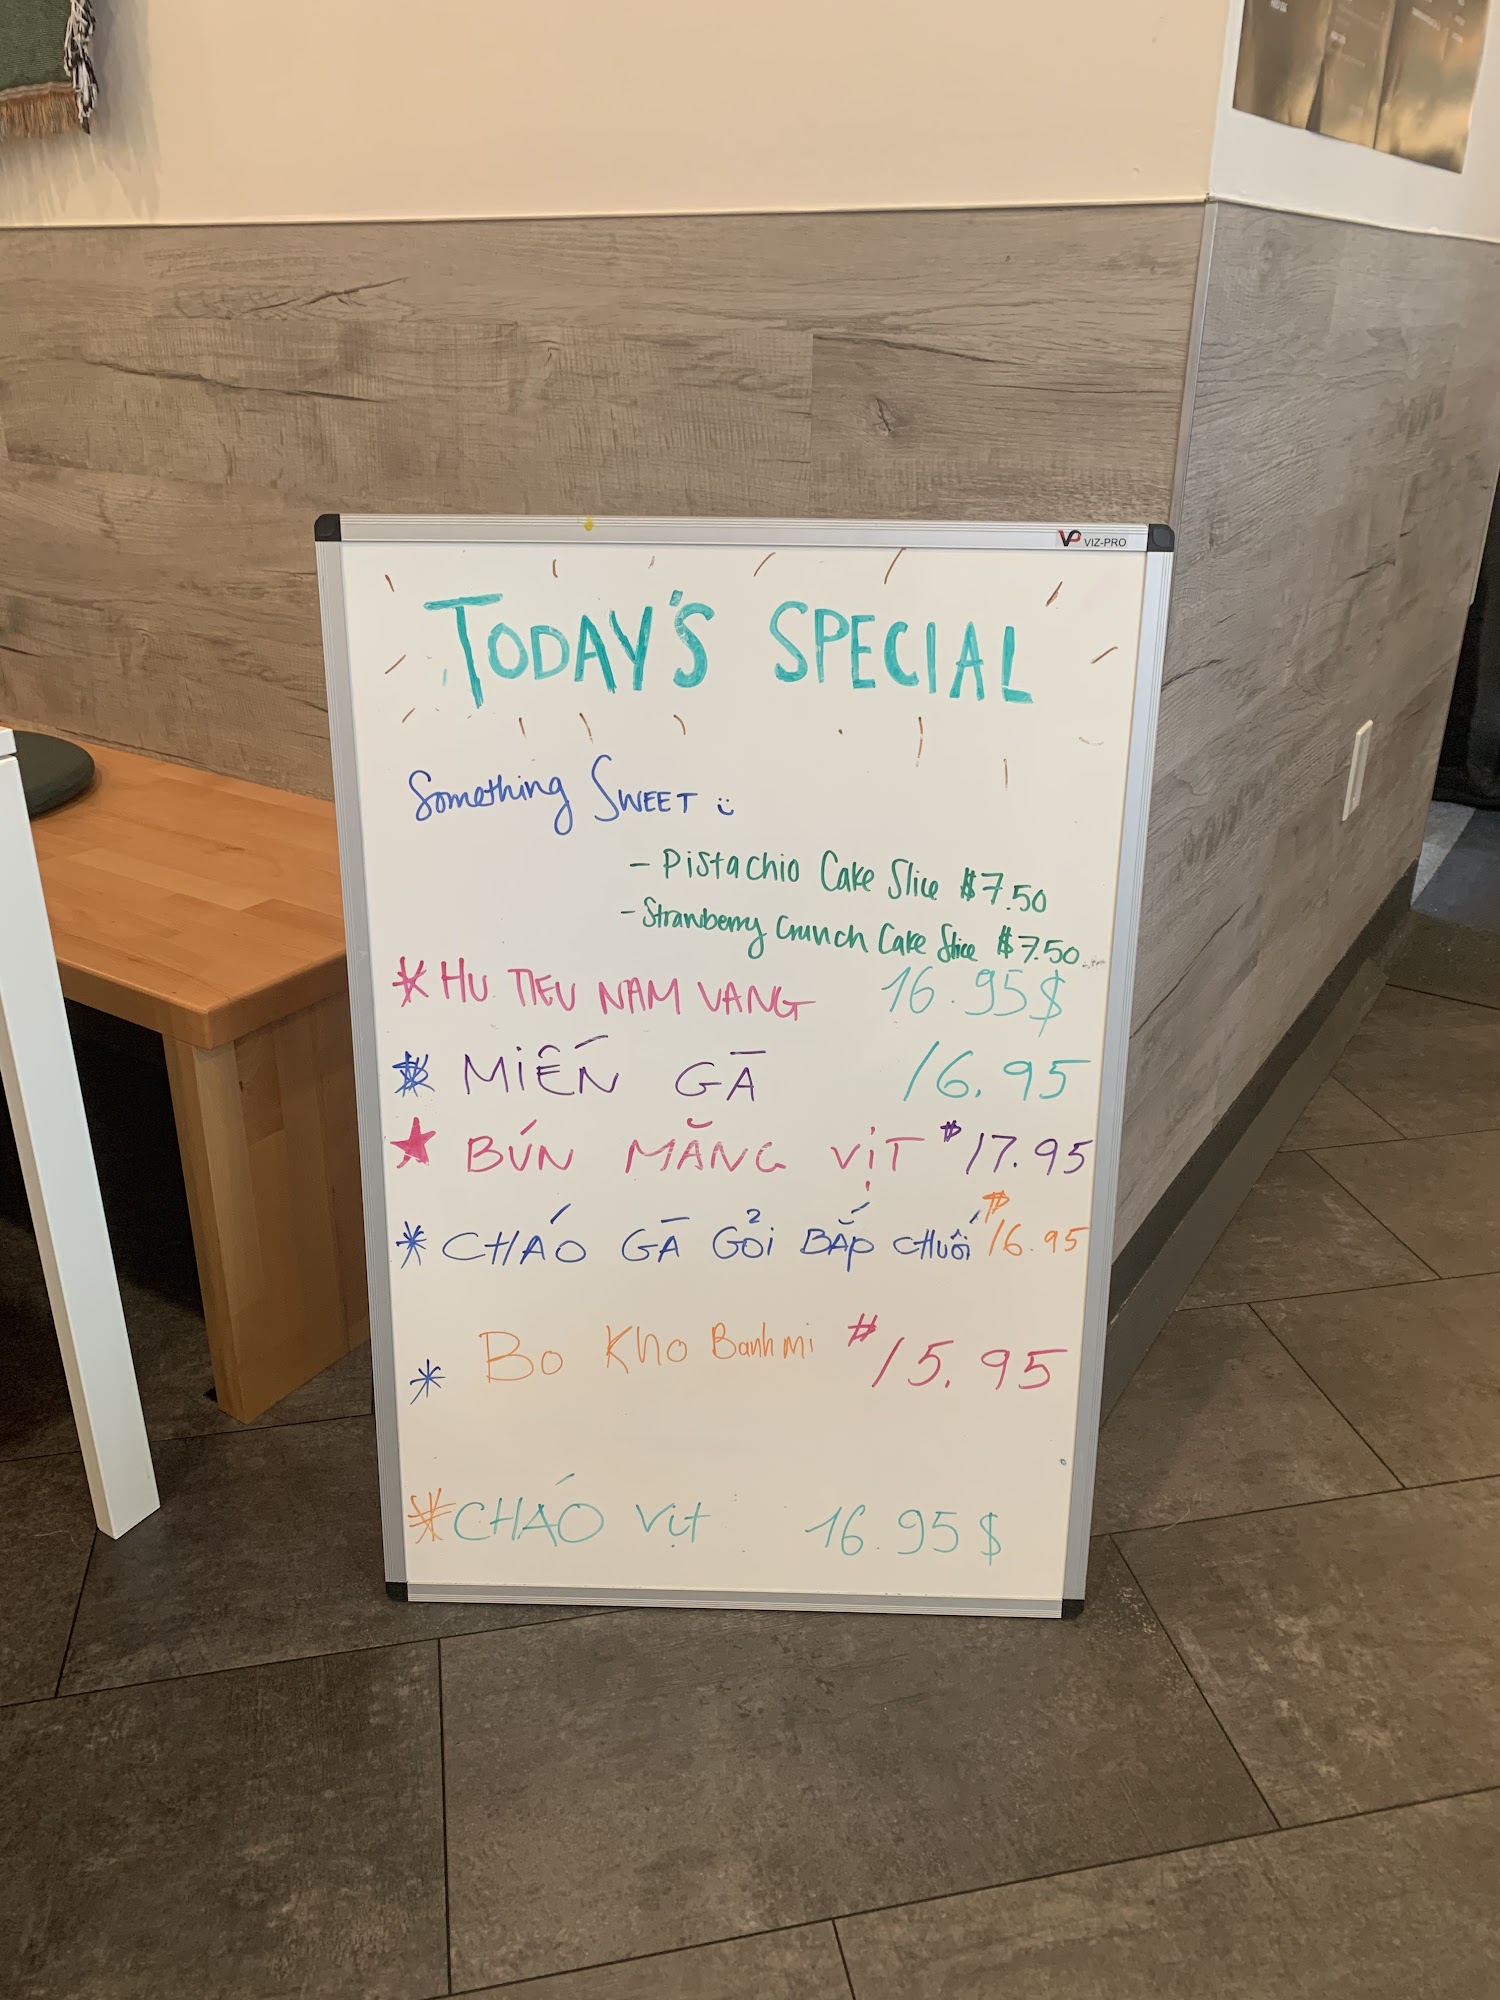 VP VIZ-PRO
TODAY'S SPECIAL
Something SWEET
- Pistachio Cake Slice $7.50
- Strawberry Crunch Cake Slice $7.50
* HU TIEU NAM VANG 16.95$
* MIẾN GÀ 16.95
★ BÚN MĂNG VỊT $17.95
* CHÁO GÀ GỎI BẮP CHUỐI $16.95
* Bo Kho Banh mi $15.95
* CHÁO Vịt 16.95$